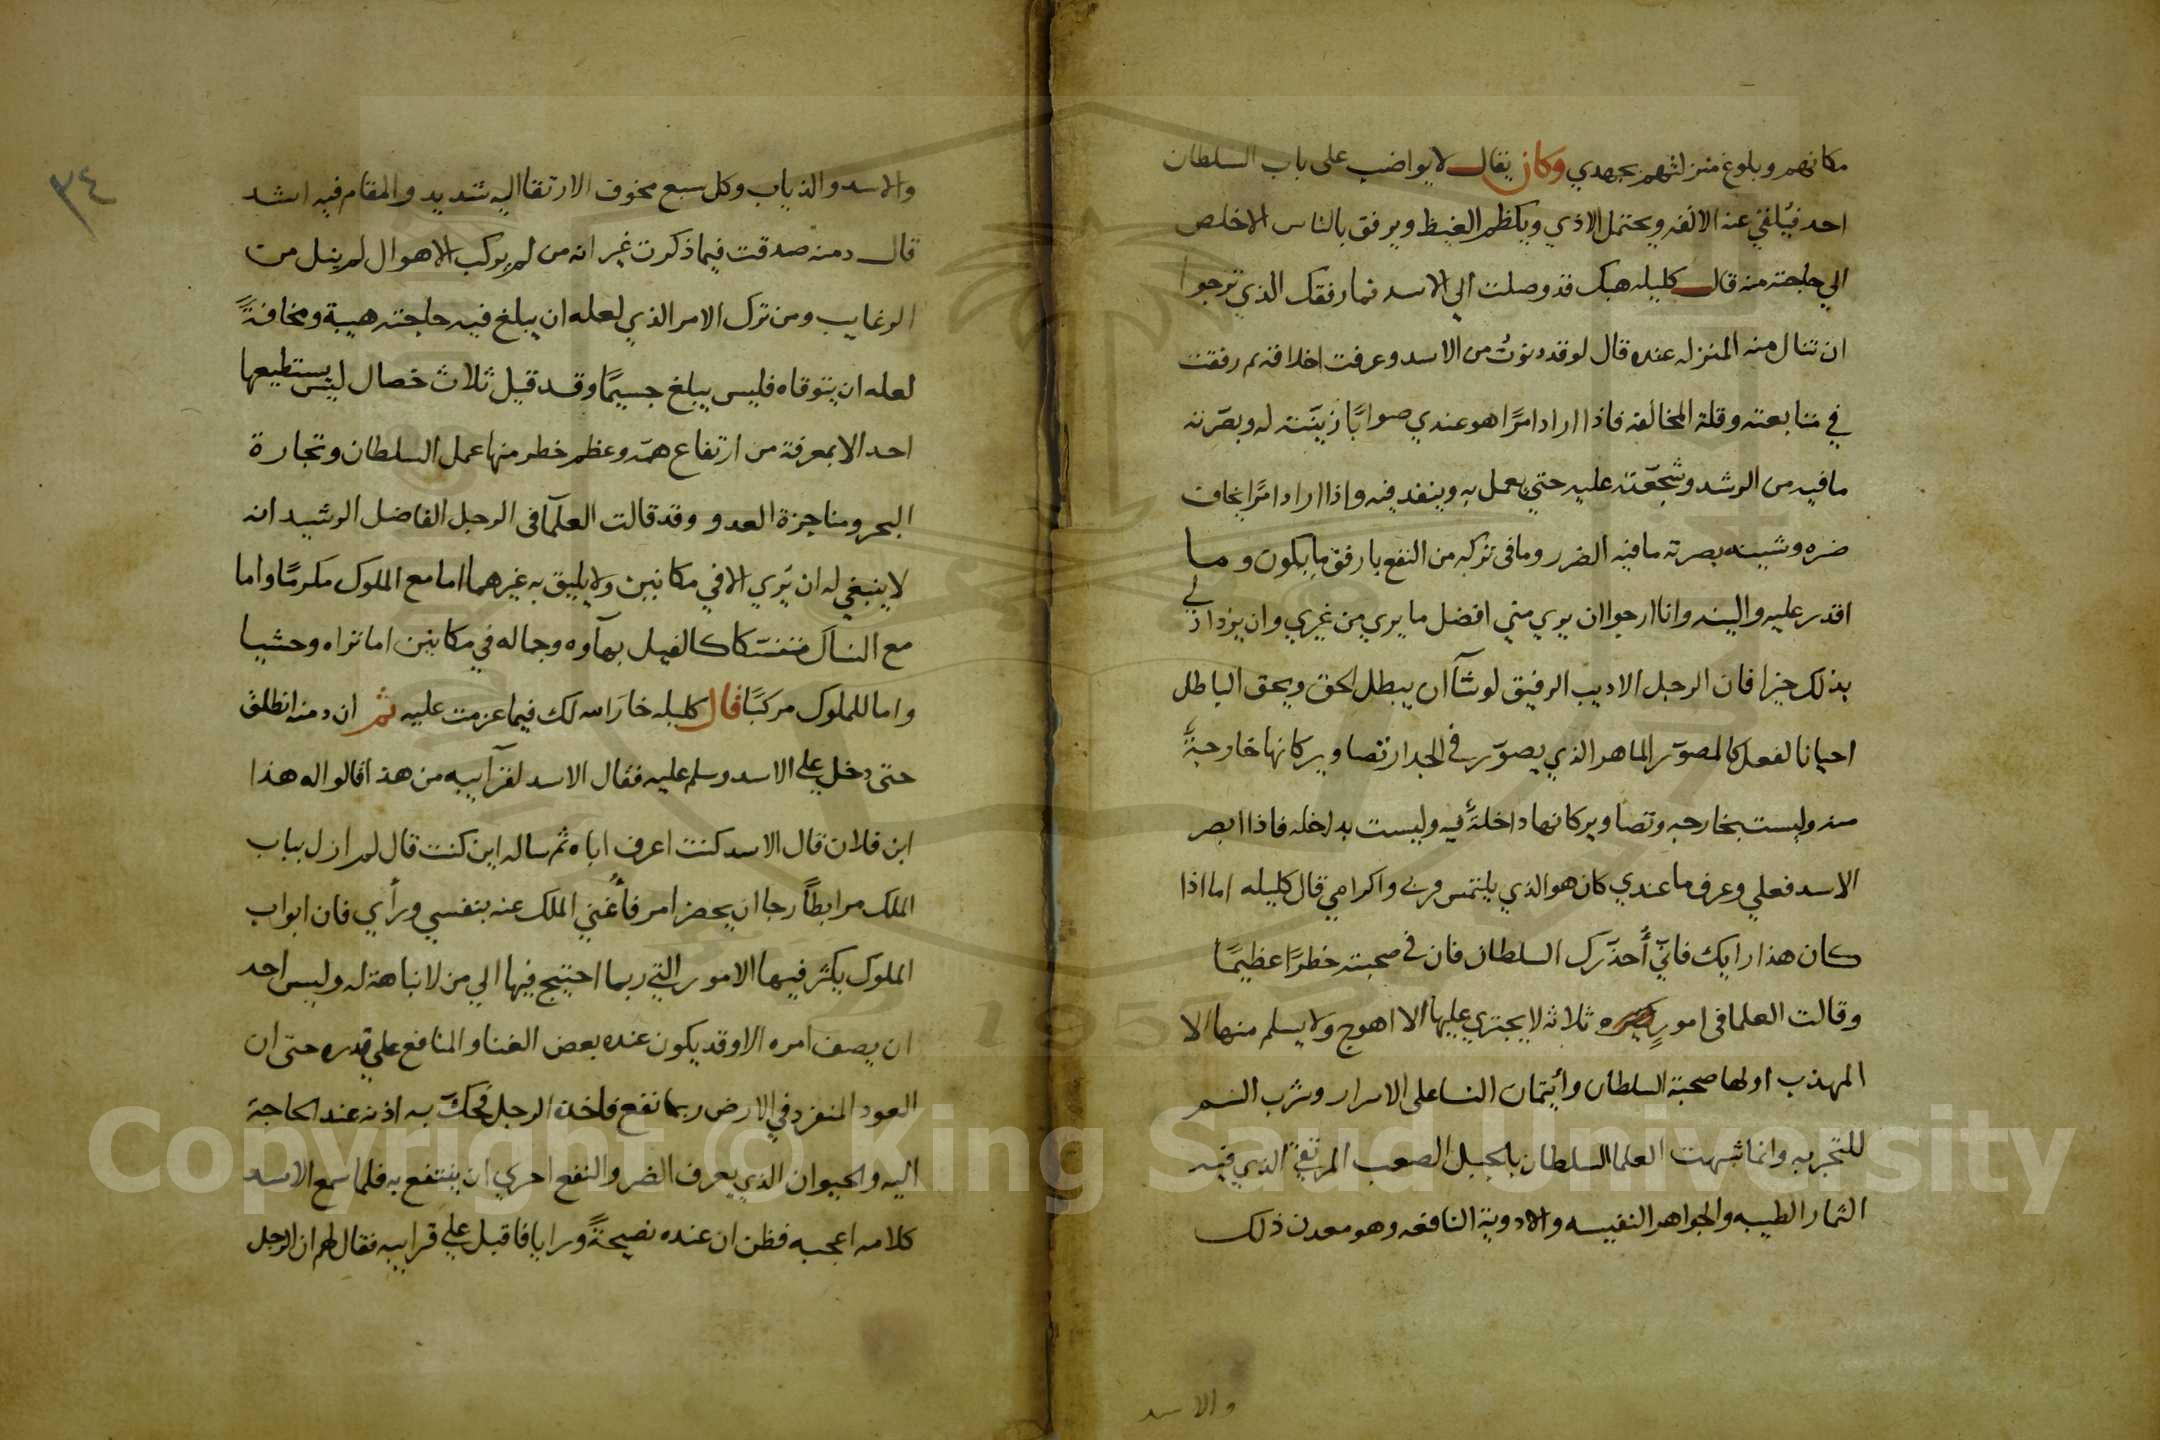 مكانهم وبلوغ منزلتهم بجهدي وكان يقال لا يواضب على باب السلطان
احد فيلقي عنه الالفه ويحتمل الاذي ويكظم الغيظ ويرفق بالناس الاخلص
الي حاجته منه قال كليله هبك قد وصلت الي الاسد فما رفقك الذي ترجوا
ان تنال منه المنزله عنده قال لو قد دنوتُ من الاسد وعرفت اخلاقه ثم رفقت
في متابعته وقلة المخالفه فاذا اراد امرًا هو عندي صوابًا زينّته له وبصّرته
ما فيه من الرشد وشجّعته عليه حتي يعمل به وينفد فيه واذا اراد امرًا يخاف
ضره وشينه بصرته ما فيه الضرر وما في تركه من النفع بارفق ما يكون وما
اقدر عليه والينه وانا ارجوا ان يري مني افضل ما يري من غيري وان يزداد لي
بذلك خيرا فان الرجل الاديب الرفيق لو شآ ان يبطل الحق ويحق الباطل
احيانا لفعل كالمصوّر الماهر الذي يصوّر في الجدار تصاوير كانها خارجةً
منه وليست بخارجه وتصاوير كانها داخلةً فيه وليست بداخله فاذا ابصر
الاسد فعلي وعرف ما عندي كان هو الذي يلتمس قربي واكرامي قال كليله اما اذا
كان هذا رايك فانّي أُحذّرك السلطان فان في صحبته خطرًا عظيمًا
وقالت العلما في امورٍ ثلاثه لا يجتري عليها الا اهوج ولا يسلم منها الا
المهذب اولها صحبة السلطان وأيتمان النسا على الاسرار وشرب السم
للتجربه وانما شبهت العلما السلطان بالجبل الصعب المرتقي الذي فيه
الثمار الطيبه والجواهر النفيسه والادوية النافعه وهو معدن ذلك
والاسد
٣٤
والاسد والذياب وكل سبع مخوف الارتقا اليه شديد والمقام فيه اشد
قال دمنه صدقت فيما ذكرت غير انه من لم يركب الاهوال لم ينل من
الرغايب ومن ترك الامر الذي لعله ان يبلغ فيه حاجته هيبة ومخافةً
لعله ان يتوقاه فليس يبلغ جسيمًا وقد قيل ثلاث خصال ليس يستطيعها
احد الا بمعرفة من ارتفاع همّه وعظم خطر منها عمل السلطان وتجارة
البحر ومناجزة العدو وقد قالت العلمآ في الرجل الفاضل الرشيد انه
لا ينبغي له ان يَري الا في مكانين ولا يليق به غيرهما اما مع الملوك مكرمًا واما
مع النساك متنسّكا كالفيل بهآوه وجماله في مكانين اما تراه وحشيا
واما للملوك مركبًا قال كليله خارَ الله لك فيما عزمت عليه ثم ان دمنه انطلق
حتى دخل على الاسد وسلم عليه فقال الاسد لقرآيبه من هذا قالوا له هذا
ابن فلان قال الاسد كنت اعرف اباه ثم ساله اين كنت قال لم ازل بباب
الملك مرابطاً رجا ان يحضر امر فأُغني الملك عنه بنفسي ورأي فان ابواب
الملوك يكثر فيها الامور التي ربما احتيج فيها الي من لا نباهة له وليس احد
ان يصف امره الا وقد يكون عنده بعض الغنا والمنافع على قدره حتى ان
العود المنفرد في الارض ربما نفع فاخذه الرجل فحكّ به اذنه عند الحاجة
اليه والحيوان الذي يعرف الضر والنفع احري ان ينتفع به فلما سمع الاسد
كلامه اعجبه فظن ان عنده نصيحةً ورايا فاقبل على قرايبه فقال لهم ان الرجل